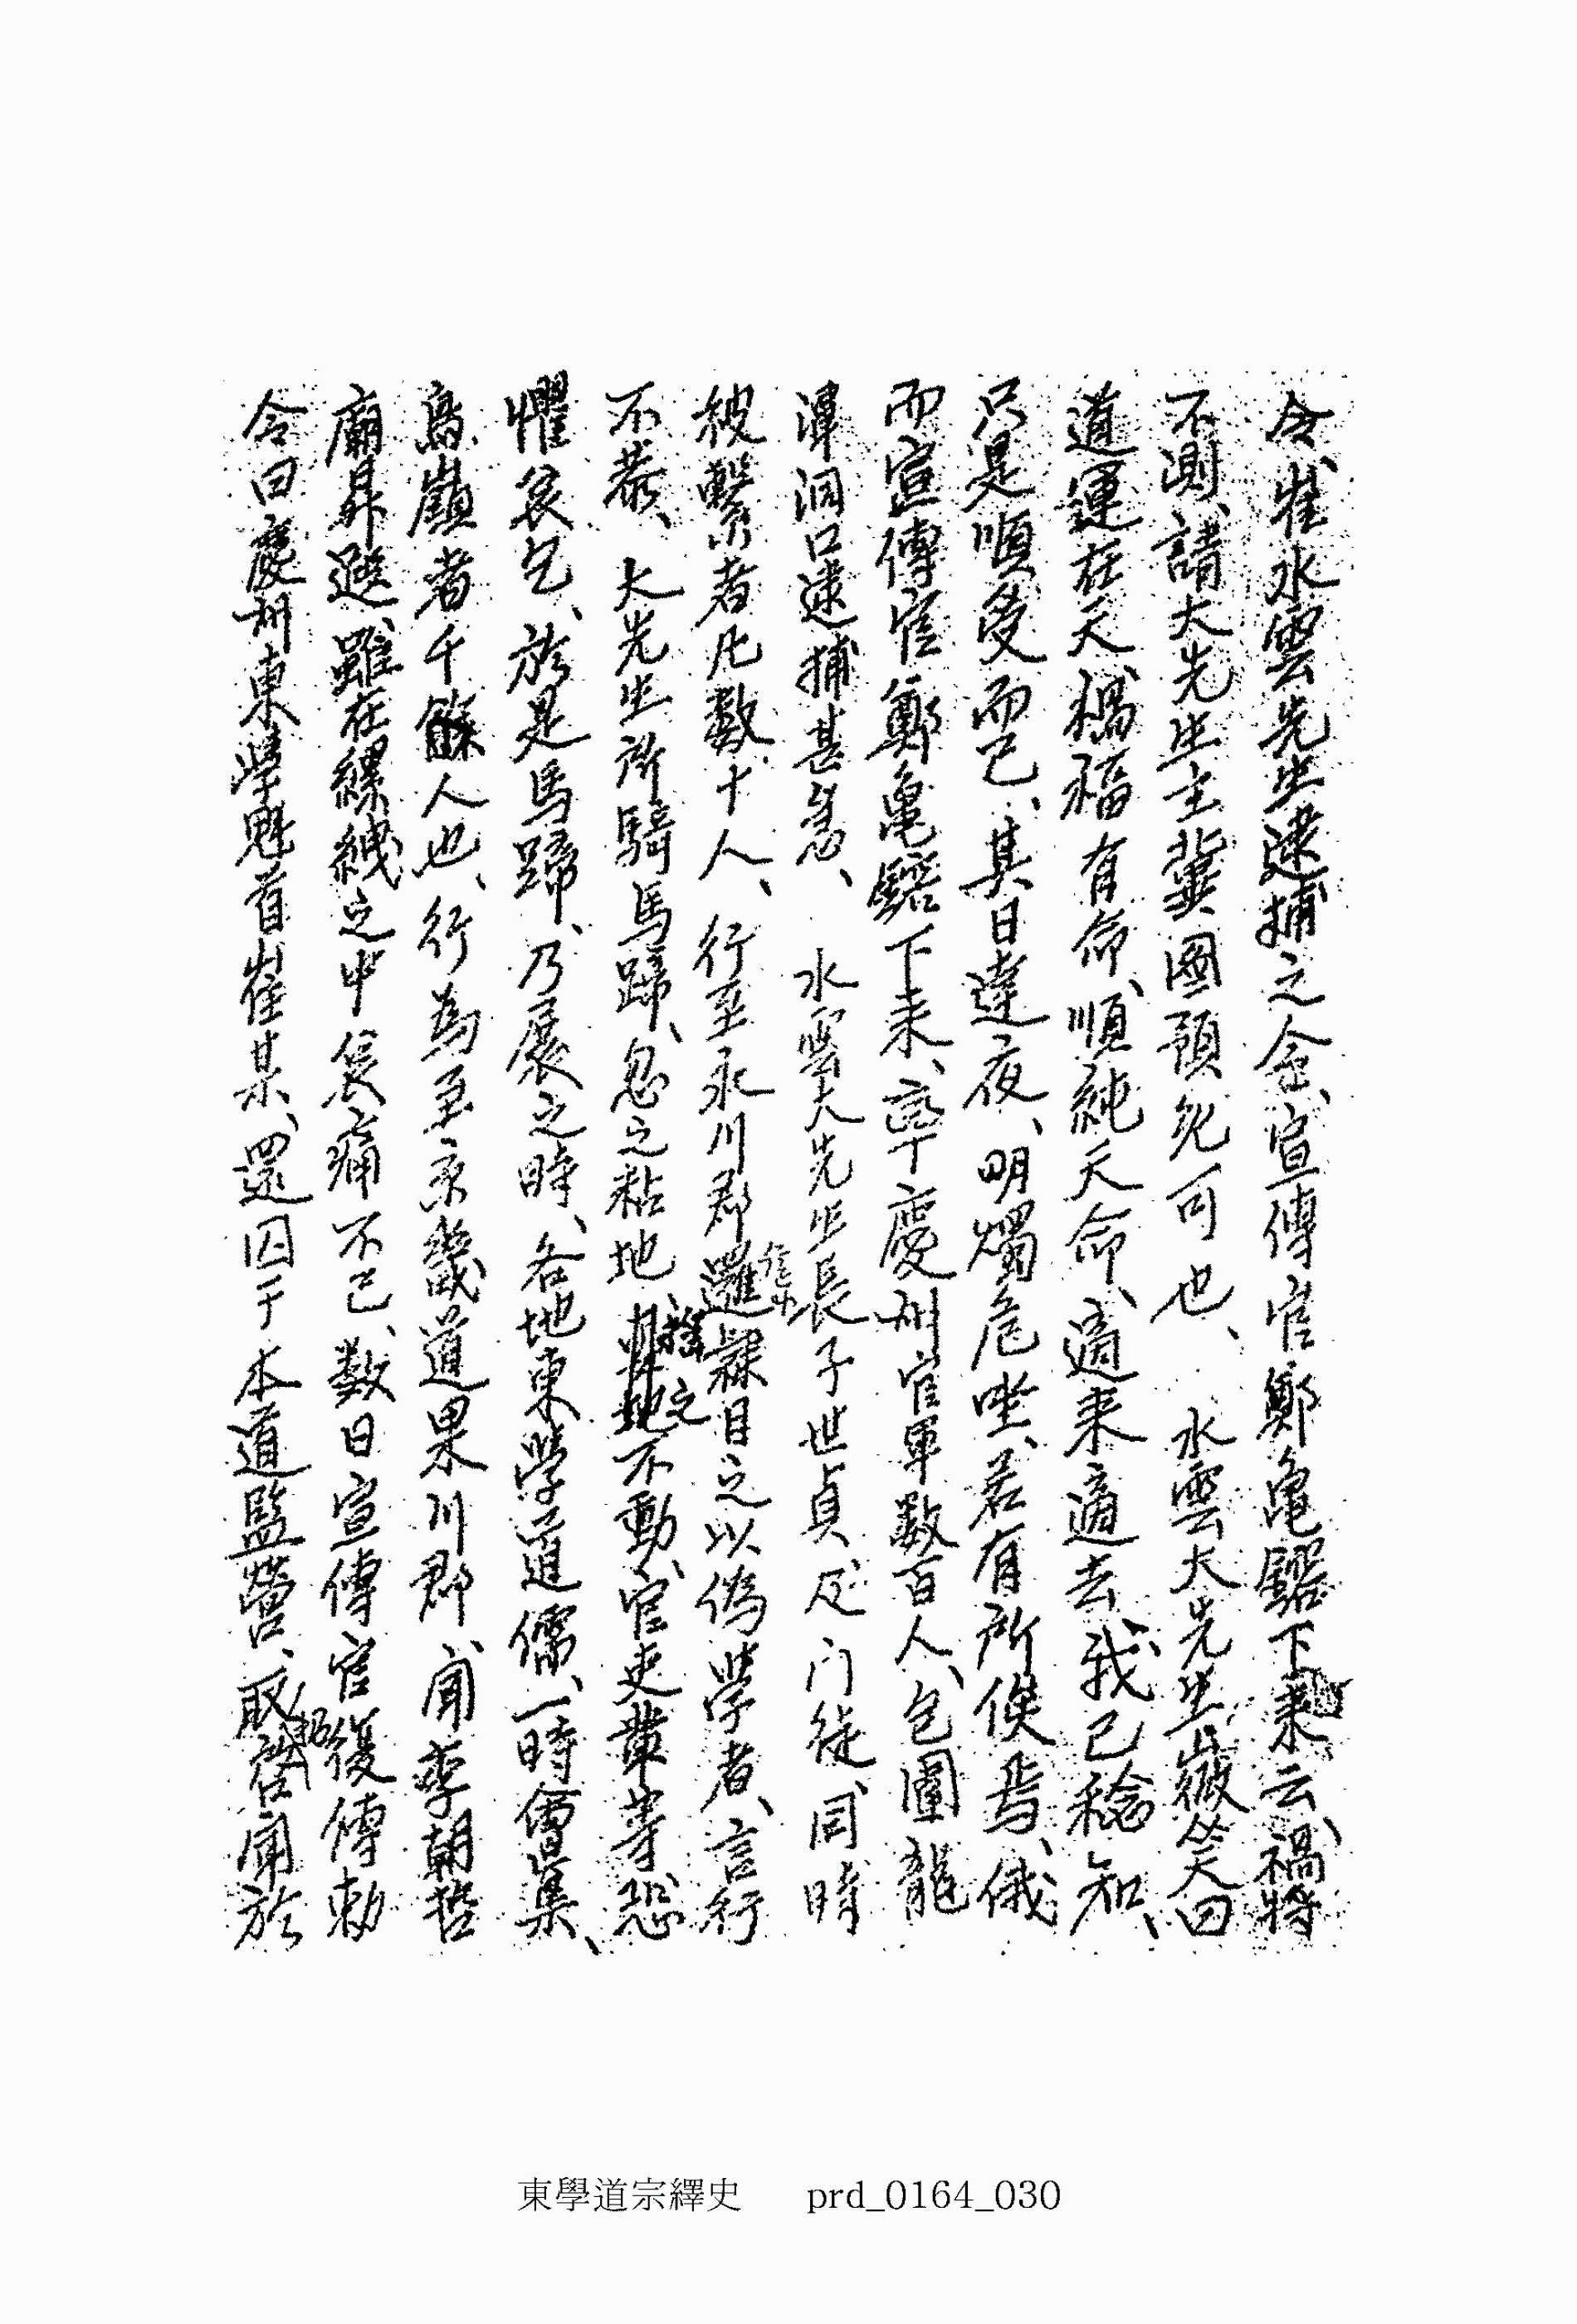 令、崔水雲先生逮捕之令、宣傳官鄭龜鎔下來云、禍將
不測、請大先生主異圖預免可也、 水雲大先生微笑曰
道運在天、禍福有命、順純天命、適來適去、我已稔知、
只是順受而已、其日達夜、明燭危坐、若有所俟焉、俄
而宣傳官鄭龜鎔下來、率慶州官軍數百人、包圍龍
潭洞口逮捕甚急、 水雲大先生長子世貞及門徒、同時
被繫者凡數十人、行至永川郡邏隸目之以僞學者、言行
不恭、 大先生所騎馬蹄、忽之粘地、 之不動、官吏輩等恐
懼哀乞、於是馬蹄、乃展之時、各地東學道儒、一時會集、
鳥嶺者千餘人也、行爲至京畿道果川郡、聞李朝哲
廟昇遐、雖在縲絏之中哀痛不已、數日宣傳官復傳勅
令曰慶州東學魁首崔某、還囚于本道監營、取 啓聞於
東學道宗繹史 prd_0164_030